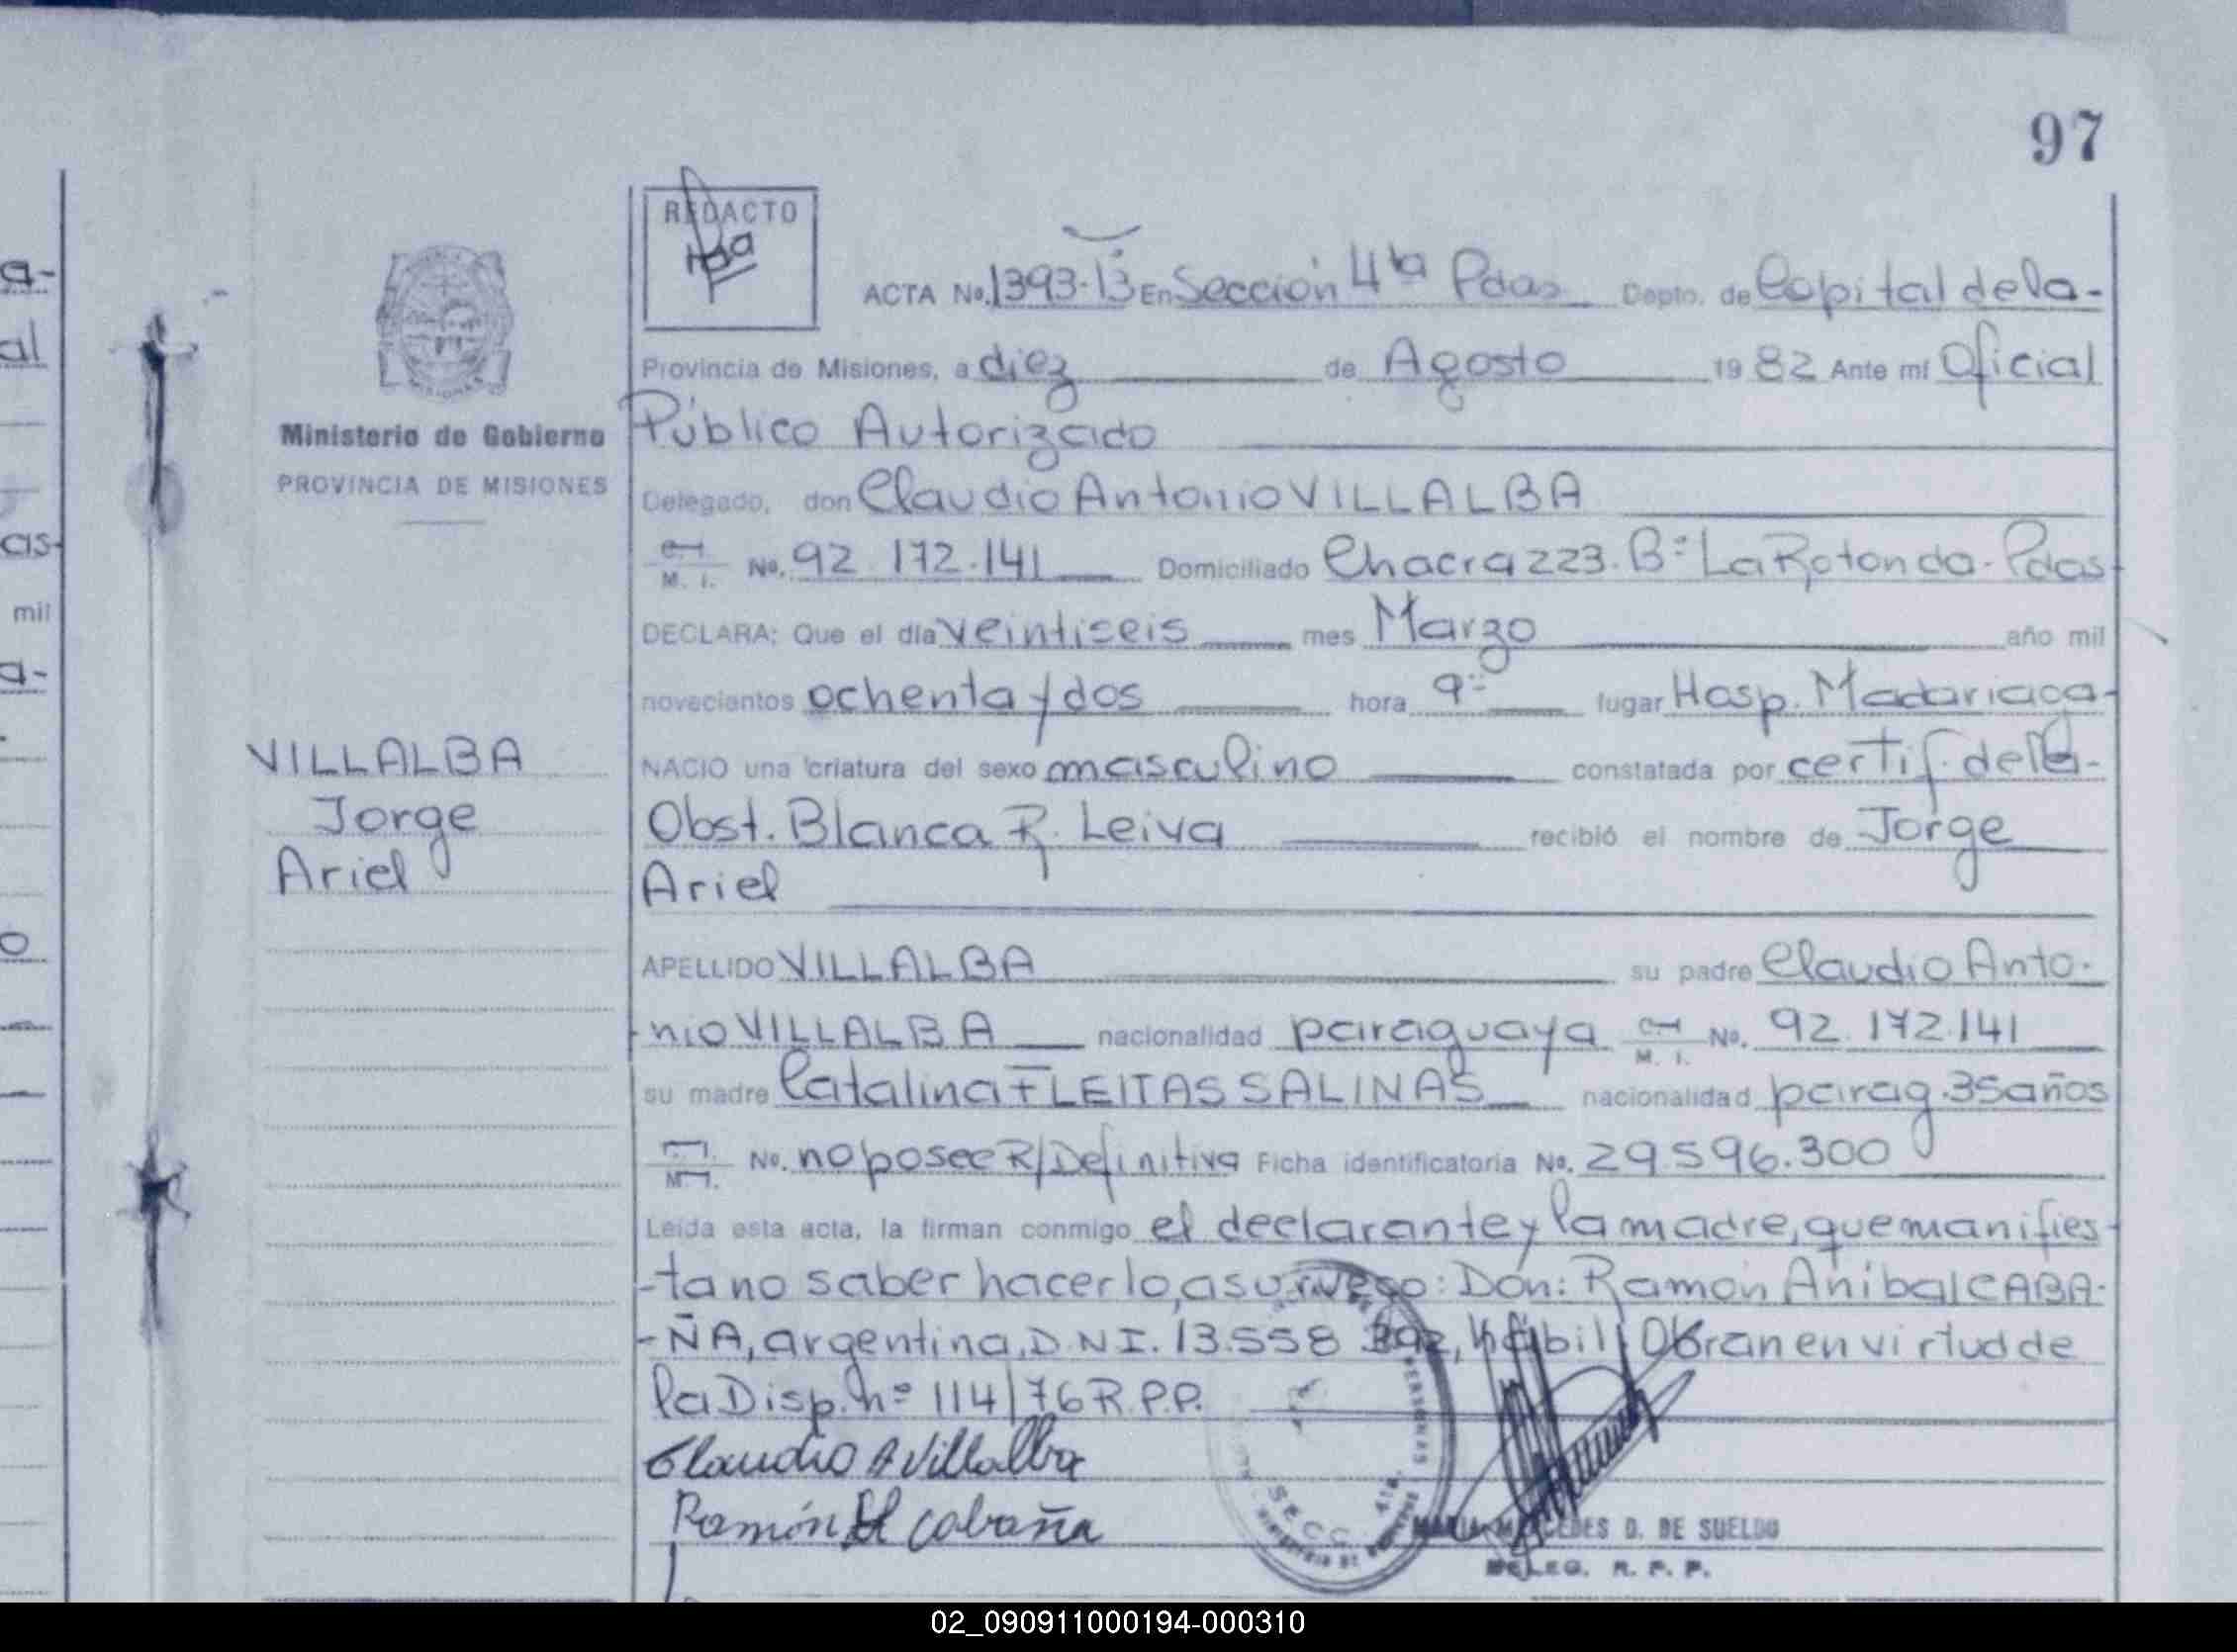 97
REDACTO
ACTA No. 1393-13 En Sección 4ta Pdas Depto. de Capital de la-
Provincia de Misiones, a diez de Agosto 1982 Ante mí Oficial
Público Autorizado
Delegado, don Claudio Antonio VILLALBA
M. I. No. 92.172.141 Domiciliado Chacra 223. Bº La Rotonda-Pdas
DECLARA; Que el día veintiseis mes Marzo año mil
novecientos ochenta y dos hora 9 lugar Hosp. Madariaga-
NACIO una criatura del sexo masculino constatada por certif. de la-
Obst. Blanca R. Leiva recibió el nombre de Jorge
Ariel
APELLIDO VILLALBA su padre Claudio Anto-
-nio VILLALBA nacionalidad paraguaya M. I. No. 92.172.141
su madre Catalina FLEITAS SALINAS nacionalidad parag. 35 años
No. no posee R/Definitiva Ficha identificatoria No. 29.596.300
Leída esta acta, la firman conmigo el declarante y la madre, que manifies-
-ta no saber hacerlo, a su ruego: Don: Ramón Anibal CABA-
-ÑA, argentina, D.N.I. 13.558.392, hábil. Obran en virtud de
la Disp. nº 114/76 R.P.P.
Claudio A Villalba
Ramón cabaña
MARIA MERCEDES D. DE SUELDO
DELEG. R. P. P.
SECC. 4ta.
PERSONAS
Ministerio de Gobierno
PROVINCIA DE MISIONES
VILLALBA
Jorge
Ariel
a-
al
as-
mil
a-
o
02_090911000194-000310